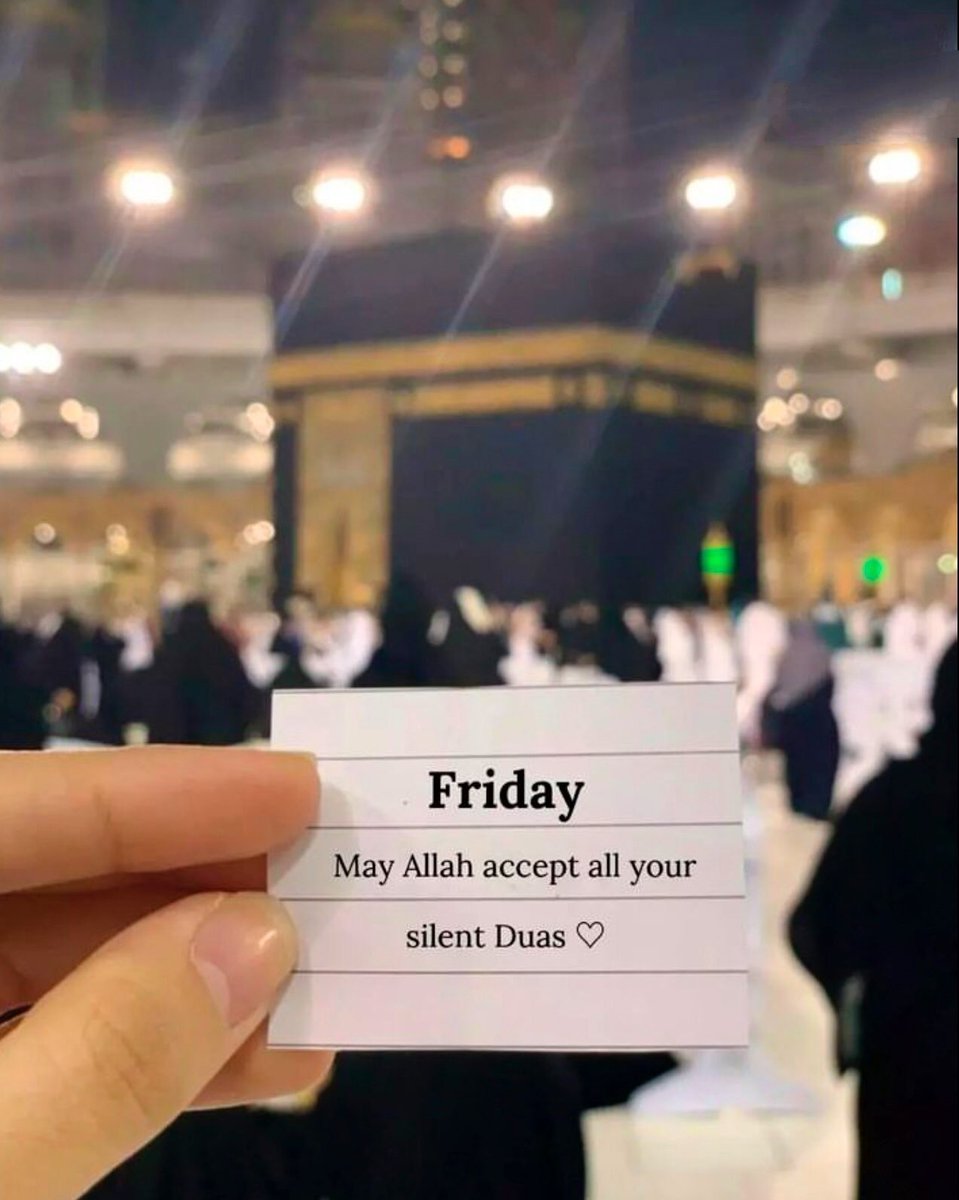 Friday
May Allah accept all your
silent Duas ♡